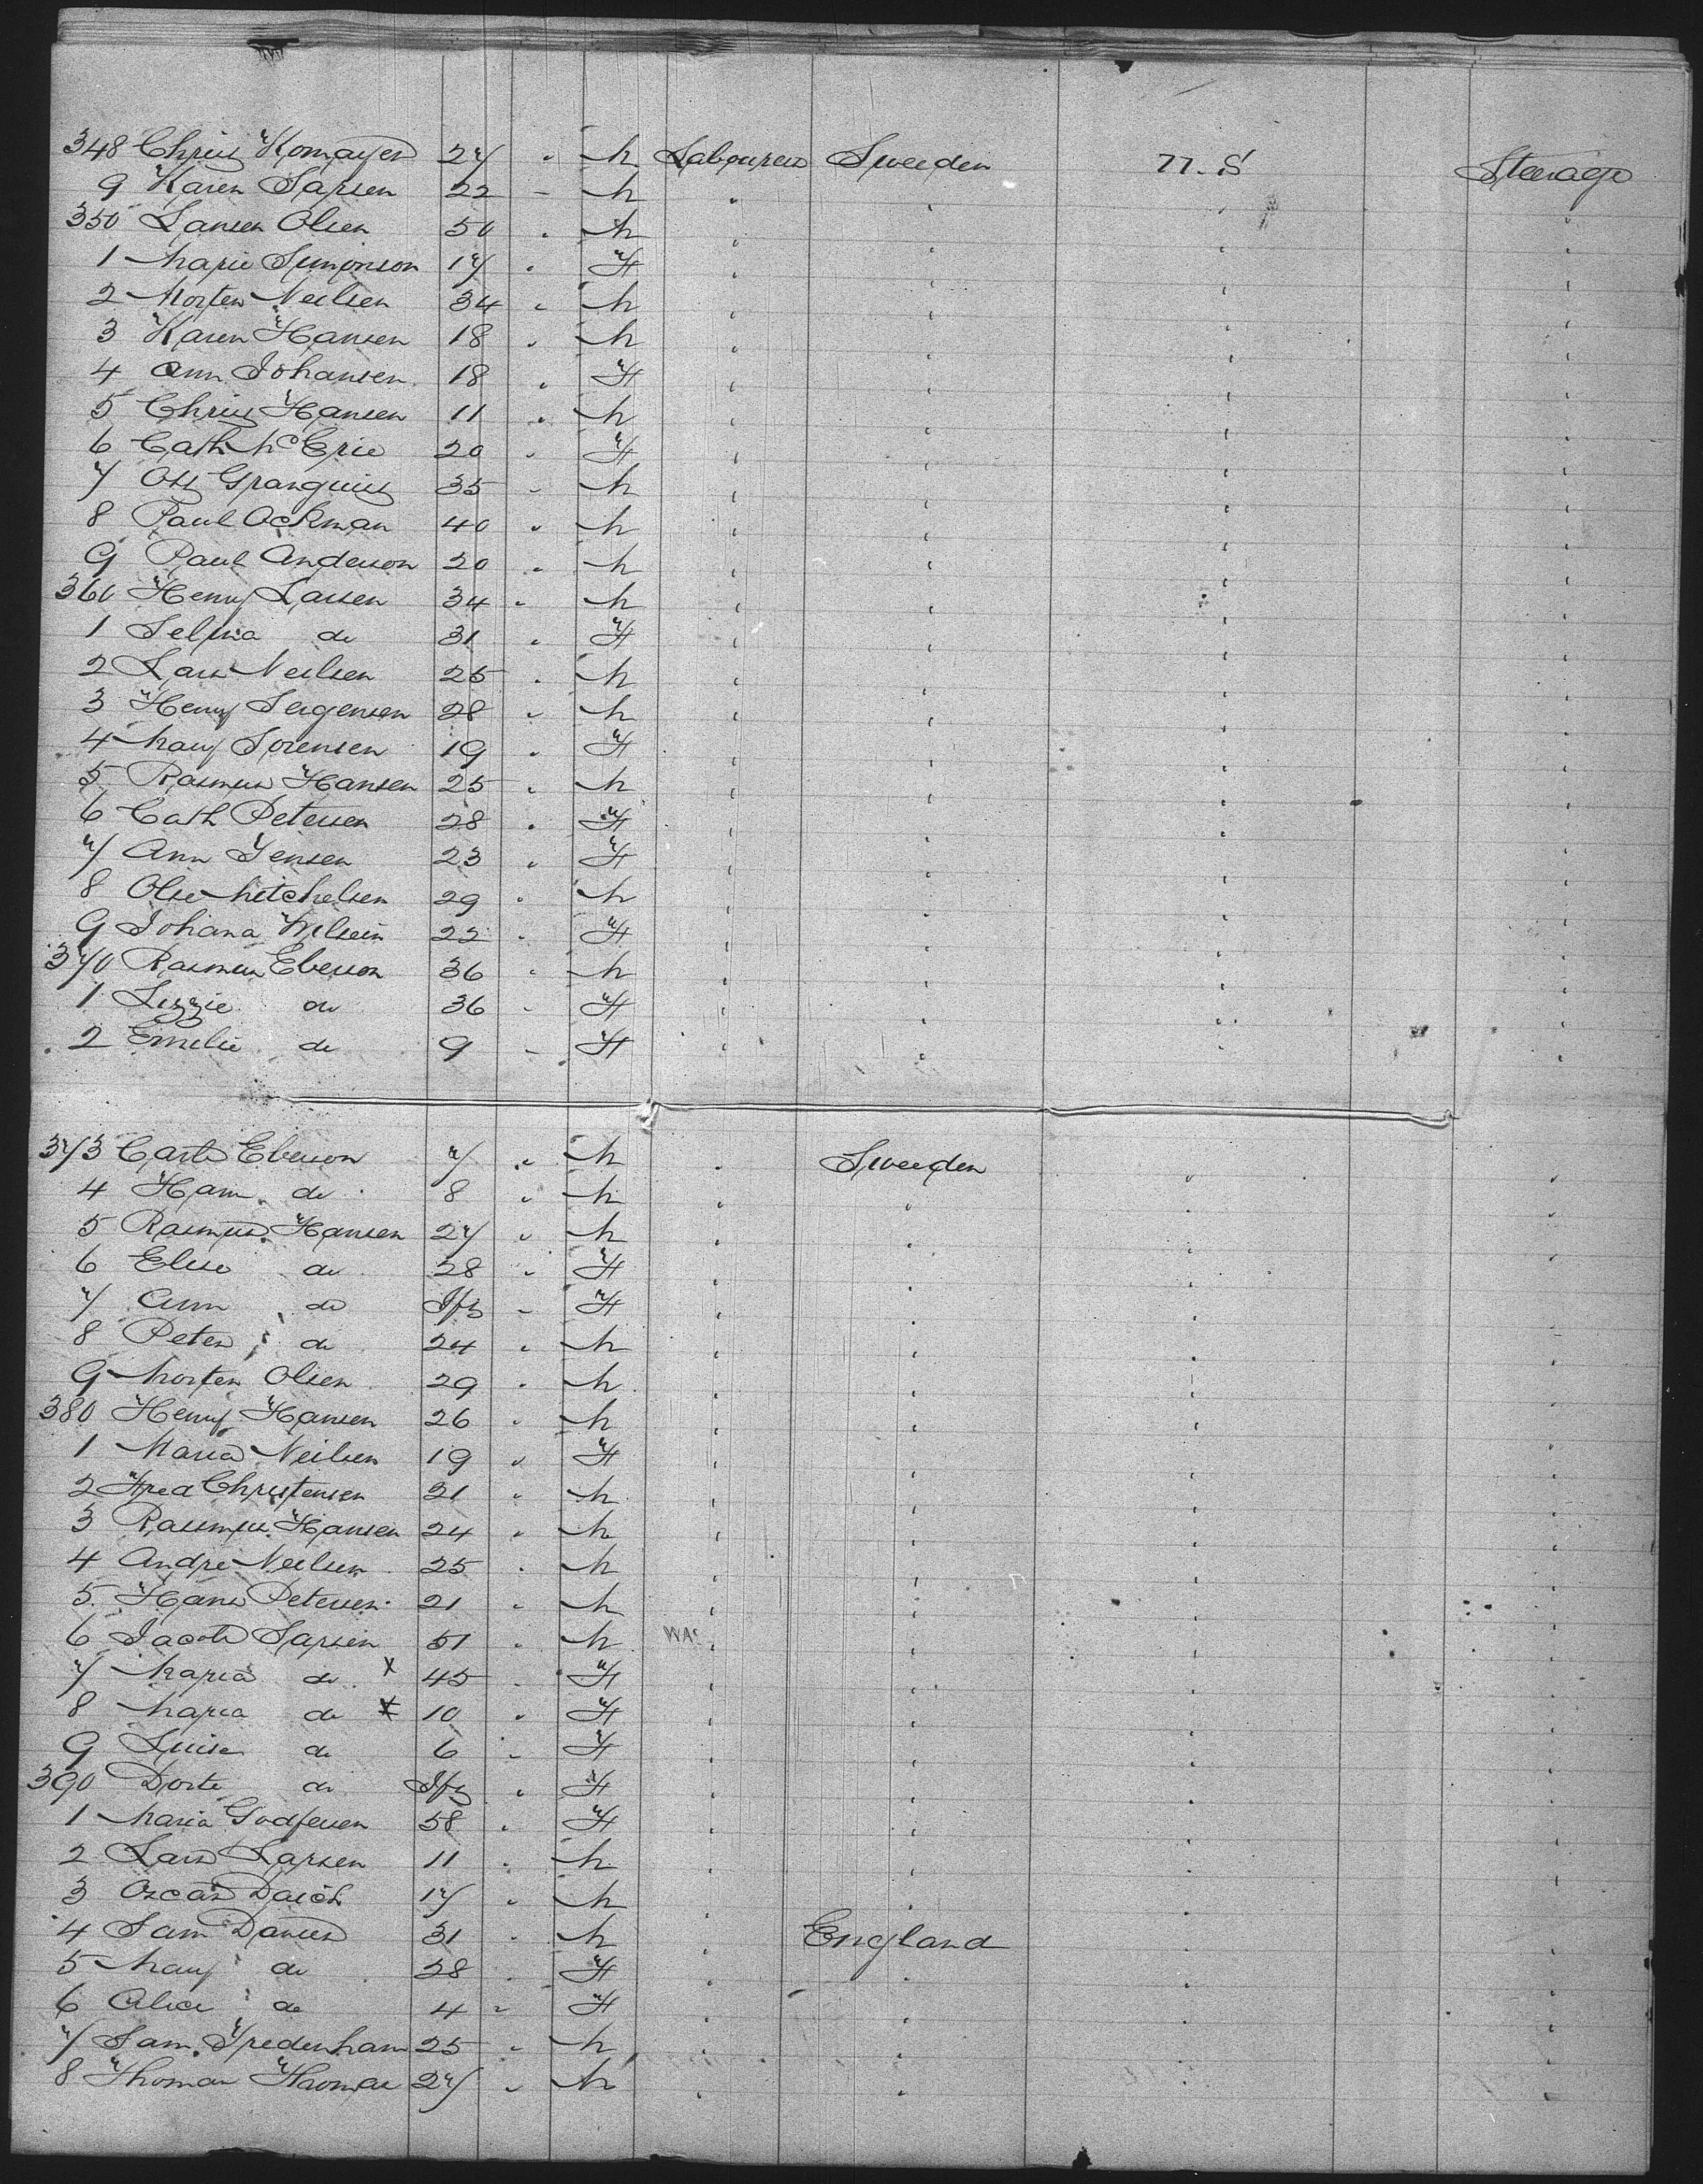 348 Chris Komayer 27 " M Labourers Sweeden U.S Steerage
9 Karen Larsen 22 " M " " " "
350 Lansen Olsen 50 " M " " " "
1 Marie Simonson 17 " F " " " "
2 Morten Neilsen 34 " M " " " "
3 Karen Hansen 18 " M " " " "
4 Ann Johansen 18 " F " " " "
5 Chris Hansen 11 " M " " " "
6 Cath McCrie 20 " F " " " "
7 Granquist 35 " M " " " "
8 Paul Ockman 40 " M " " " "
9 Paul Anderson 20 " M " " " "
360 Henry Larsen 34 " M " " " "
1 Selma do 31 " F " " " "
2 Lars Neilsen 25 " M " " " "
3 Henry Jergensen 28 " M " " " "
4 Mary Sorensen 19 " F " " " "
5 Rasmus Hansen 25 " M " " " "
6 Cath Petersen 28 " F " " " "
7 Ann Jensen 23 " F " " " "
8 Ole Mitchelsen 29 " M " " " "
9 Johana 22 " F " " " "
370 Rasmus Eberson 36 " M " " " "
1 Lizzie do 36 " F " " " "
2 Emelie do 9 " F " " " "
373 Eberson 7 " M " Sweeden " "
4 Hans do 8 " M " " " "
5 Rasmus Hansen 27 " M " " " "
6 Elise do 28 " F " " " "
7 Ann do Ift " F " " " "
8 Peter do 24 " M " " " "
9 Morten Olsen 29 " M " " " "
380 Henry Hansen 26 " M " " " "
1 Maria Neilsen 19 " F " " " "
2 Fred Christensen 21 " M " " " "
3 Rasmus Hansen 24 " M " " " "
4 Andre Neilsen 25 " M " " " "
5 Hans Petersen 21 " M " " " "
6 Jacob Larsen 51 " M " " " "
7 Maria do x 45 " F " " " "
8 Maria do x 10 " F " " " "
9 Luise do 6 " F " " " "
390 Dorte do Ift " F " " " "
1 Maria Godfersen 58 " F " " " "
2 Lars Larsen 11 " M " " " "
3 Oscar 17 " M " " " "
4 Sam Davies 31 " M " England " "
5 Mary do 28 " F " " " "
6 Alice do 4 " F " " " "
7 Sam Tredenham 25 " M " " " "
8 Thomas Thomas 27 " M " " " "